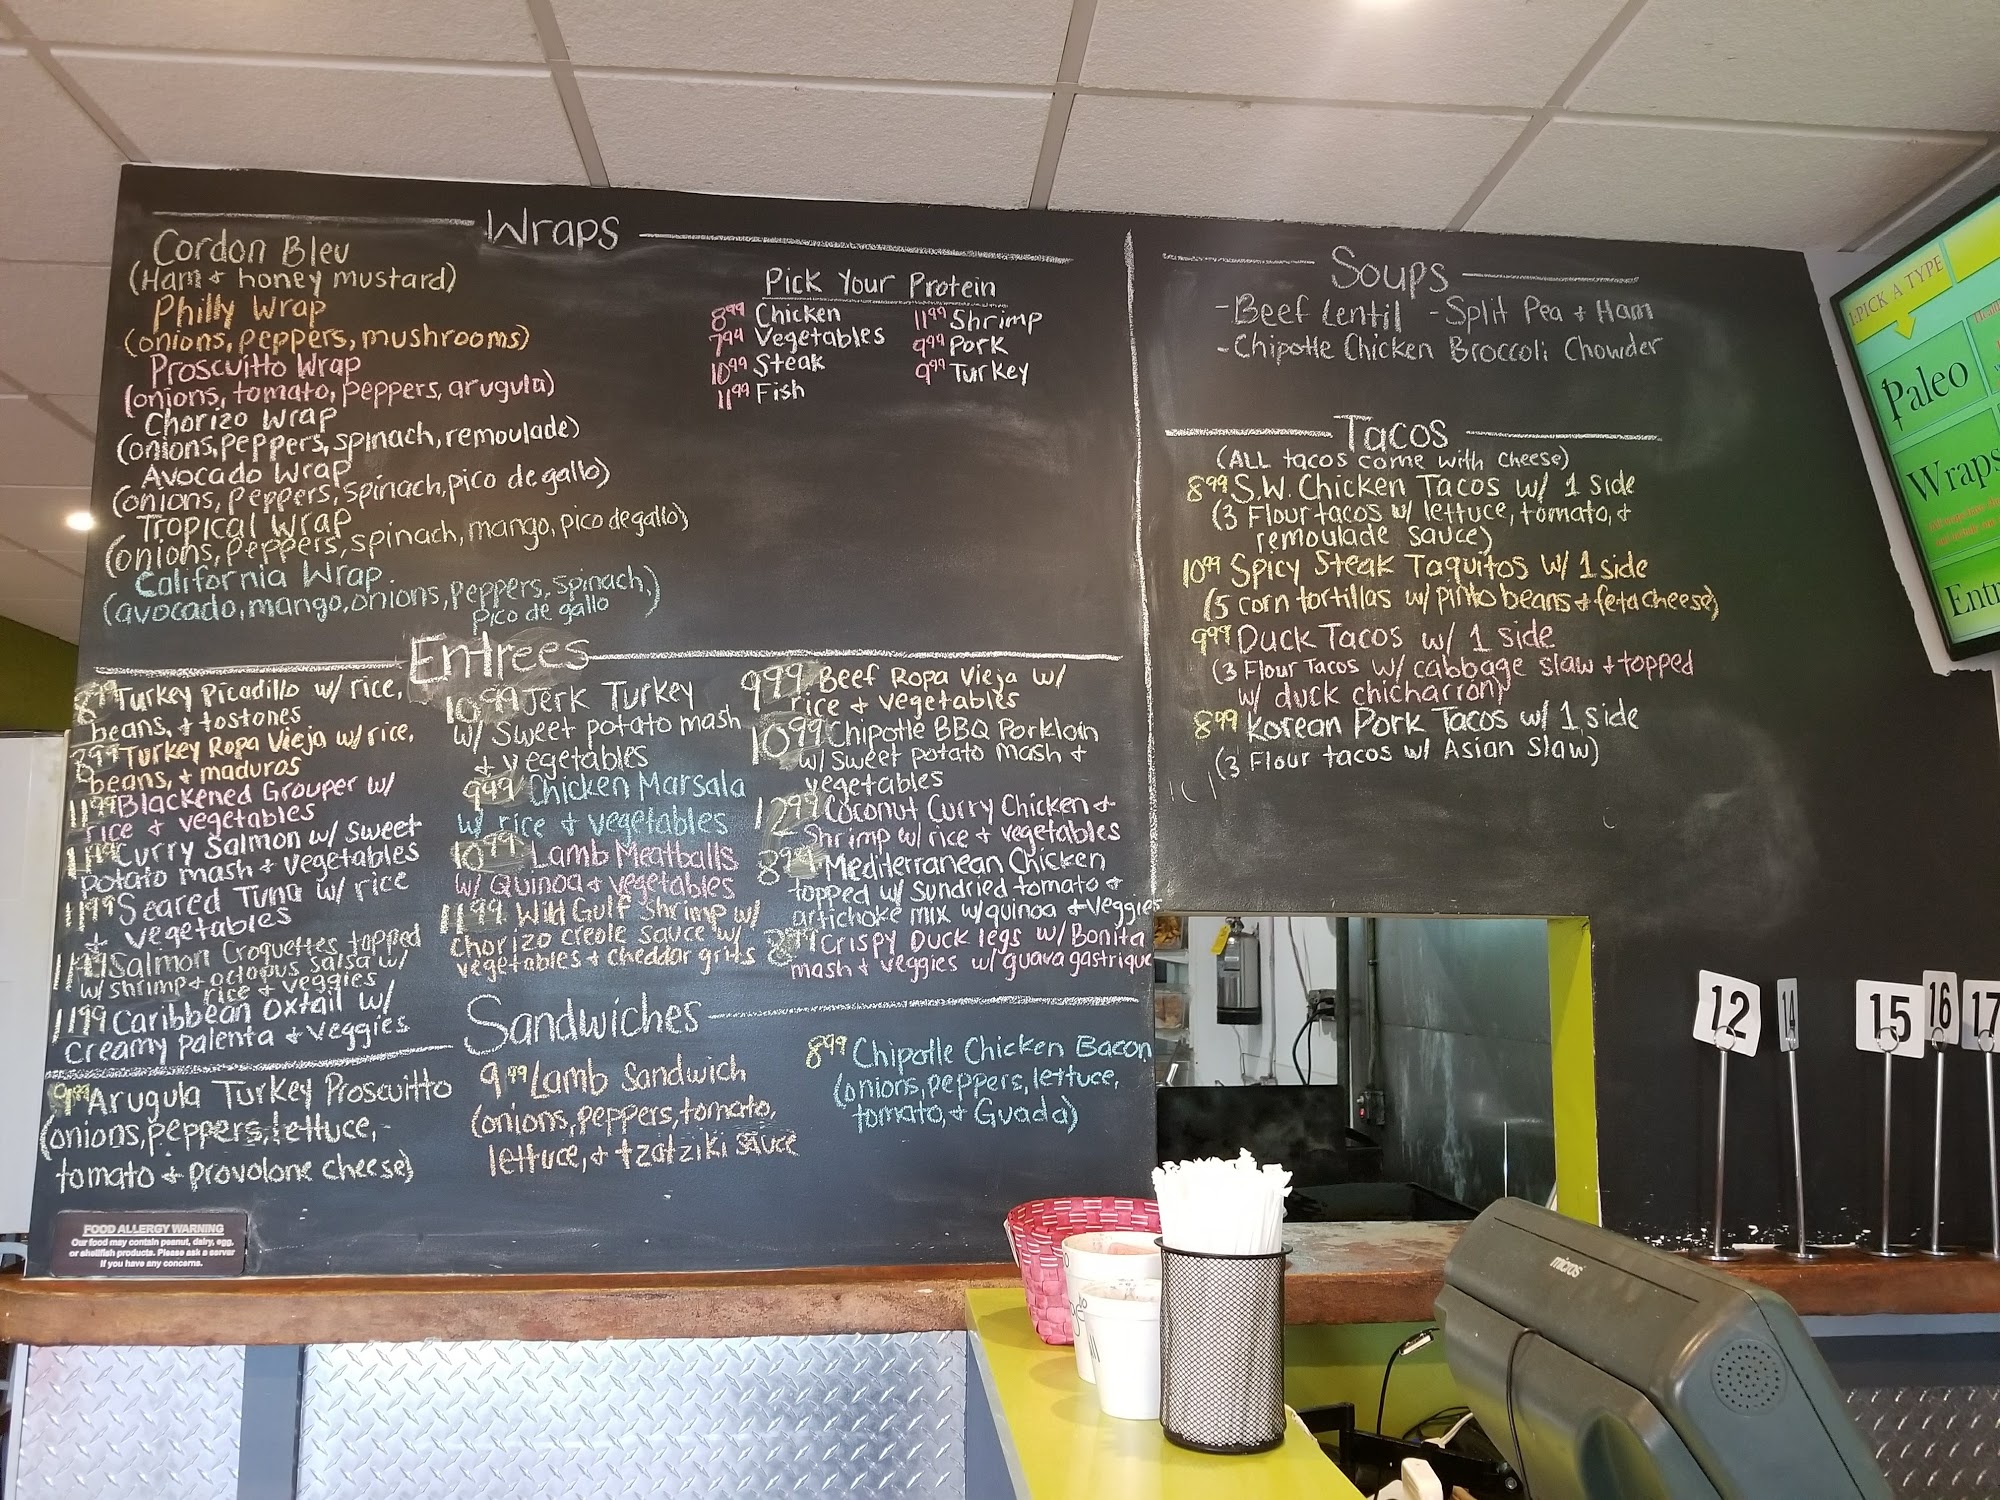 Wraps
Cordon Bleu
(Ham + honey mustard)
Philly Wrap
(onions, peppers, mushrooms)
Proscuitto Wrap
(onions, tomato, peppers, arugula)
Chorizo Wrap
(onions, peppers, spinach, remoulade)
Avocado Wrap
(onions, peppers, spinach, pico de gallo)
Tropical Wrap
(onions, peppers, spinach, mango, pico de gallo)
California Wrap
(avocado, mango, onions, peppers, spinach,
pico de gallo
)
Pick Your Protein
8.99 Chicken
7.99 Vegetables
10.99 Steak
11.99 Fish
11.99 Shrimp
9.99 Pork
9.99 Turkey
Entrees
8.99 Turkey Picadillo w/ rice,
beans, + tostones
8.99 Turkey Ropa Vieja w/ rice,
beans, + maduros
11.99 Blackened Grouper w/
rice + vegetables
11.99 Curry Salmon w/ sweet
potato mash + vegetables
11.99 Seared Tuna w/ rice
+ vegetables
11.99 Salmon Croquettes topped
w/ shrimp + octopus salsa w/
rice + veggies
11.99 Caribbean Oxtail w/
creamy palenta + veggies
10.99 Jerk Turkey
w/ sweet potato mash
+ vegetables
9.99 Chicken Marsala
w/ rice + vegetables
10.99 Lamb Meatballs
w/ Quinoa + vegetables
11.99 Wild Gulf Shrimp w/
chorizo creole sauce w/
vegetables + cheddar grits
9.99 Beef Ropa Vieja w/
rice + vegetables
10.99 Chipotle BBQ Porkloin
w/ sweet potato mash +
vegetables
12.99 Coconut Curry Chicken +
Shrimp w/ rice + vegetables
8.99 Mediterranean Chicken
topped w/ sundried tomato +
artichoke mix w/ quinoa + veggies
8.99 Crispy Duck legs w/ Bonita
mash + veggies w/ guava gastrique
Sandwiches
9.99 Arugula Turkey Proscuitto
(onions, peppers, lettuce,
tomato + provolone cheese)
9.99 Lamb Sandwich
(onions, peppers, tomato,
lettuce, + tzatziki sauce
8.99 Chipotle Chicken Bacon
(onions, peppers, lettuce,
tomato, + Guada)
Soups
- Beef Lentil - Split Pea + Ham
- Chipotle Chicken Broccoli Chowder
Tacos
(ALL tacos come with cheese)
8.99 S.W. Chicken Tacos w/ 1 side
(3 Flour tacos w/ lettuce, tomato, +
remoulade sauce)
10.99 Spicy Steak Taquitos w/ 1 side
(5 corn tortillas w/ pinto beans + feta cheese)
9.99 Duck Tacos w/ 1 side
(3 Flour Tacos w/ cabbage slaw + topped
w/ duck chicharron)
8.99 Korean Pork Tacos w/ 1 side
(3 Flour tacos w/ Asian slaw)
FOOD ALLERGY WARNING
Our food may contain peanut, dairy, egg,
or shellfish products. Please ask a server
if you have any concerns.
1:PICK A TYPE
Paleo
Wraps
Entr
12
14
15
16
17
micros